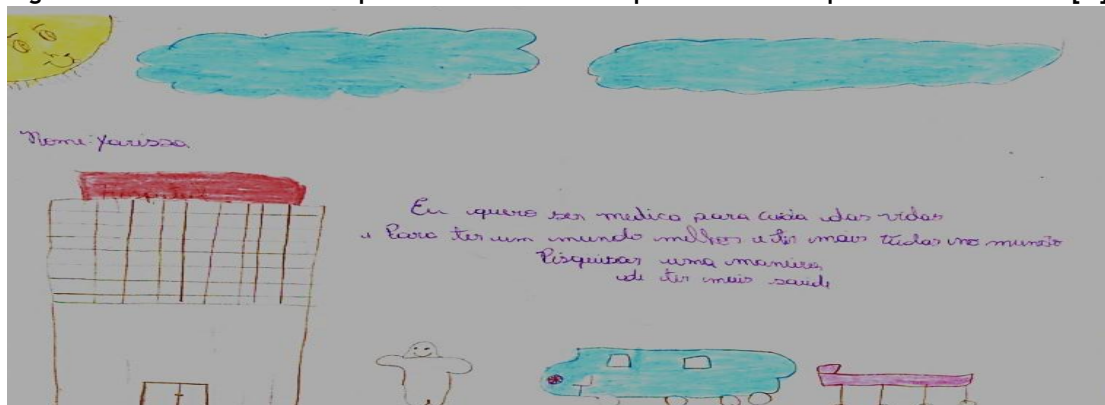 Nome: Yarissa
Eu quero ser medica para cuida das vidas
e Para ter um mundo melhor e ter mais vidas no mundo
Pisquisar uma maneira
de ter mais saude